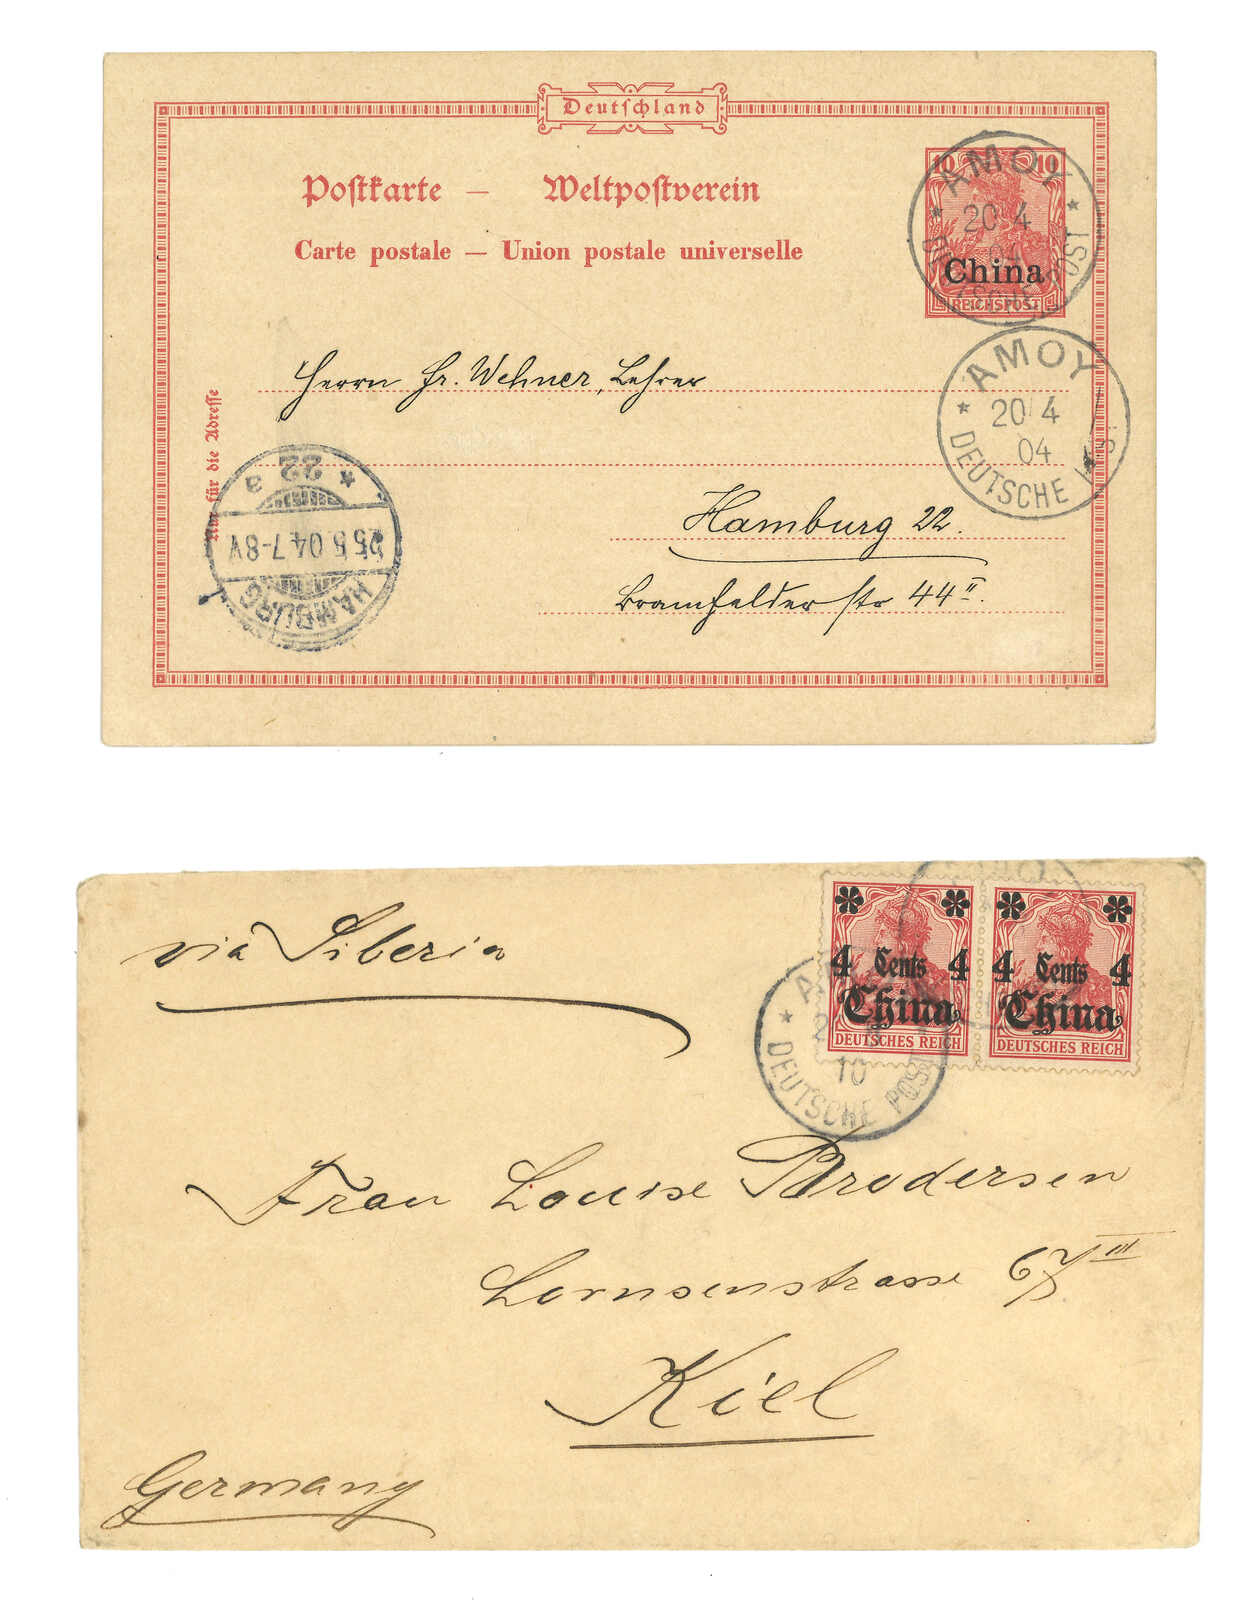 Deutschland
Postkarte — Weltpostverein
Carte postale — Union postale universelle
10 10
China
REICHSPOST
AMOY
20 4
04
DEUTSCHE POST
AMOY
20 4
04
DEUTSCHE
Nur für die Adresse
Herrn Fr. Wehner, Lehrer
Hamburg 22.
Bramfelderstr 44 II
22 a
25.5.04.7-8V
HAMBURG
via Siberia
4 Cents 4
China
DEUTSCHES REICH
4 Cents 4
China
DEUTSCHES REICH
10
DEUTSCHE POST
Frau Louise Brodersen
Lornsenstrasse 67 III
Kiel
Germany